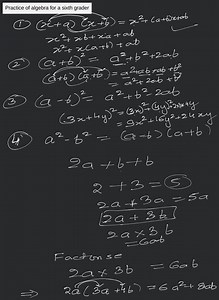 Practice of algebra for a sixth grader
① (x+a)(x+b) = x² + (a+b)x + ab
x² + xb + xa + ab
x² + x(a+b) + ab
② (a+b)² = a² + b² + 2ab
(a+b)(a+b) = a² + ab + ab + b²
= a² + 2ab + b²
③ (a-b)² = a² + b² - 2ab
(3x+4y)² = (3x)² + (4y)² + 2·3x·4y
= 9x² + 16y² + 24xy
④ a² - b² = (a-b)(a+b)
2a + b + b
2 + 3 = 5
2a + 3a = 5a
2a + 3b
2a × 3b
= 6ab
Factorise
2a × 3b = 6ab
⇒ 2a(3a+4b) = 6a² + 8ab